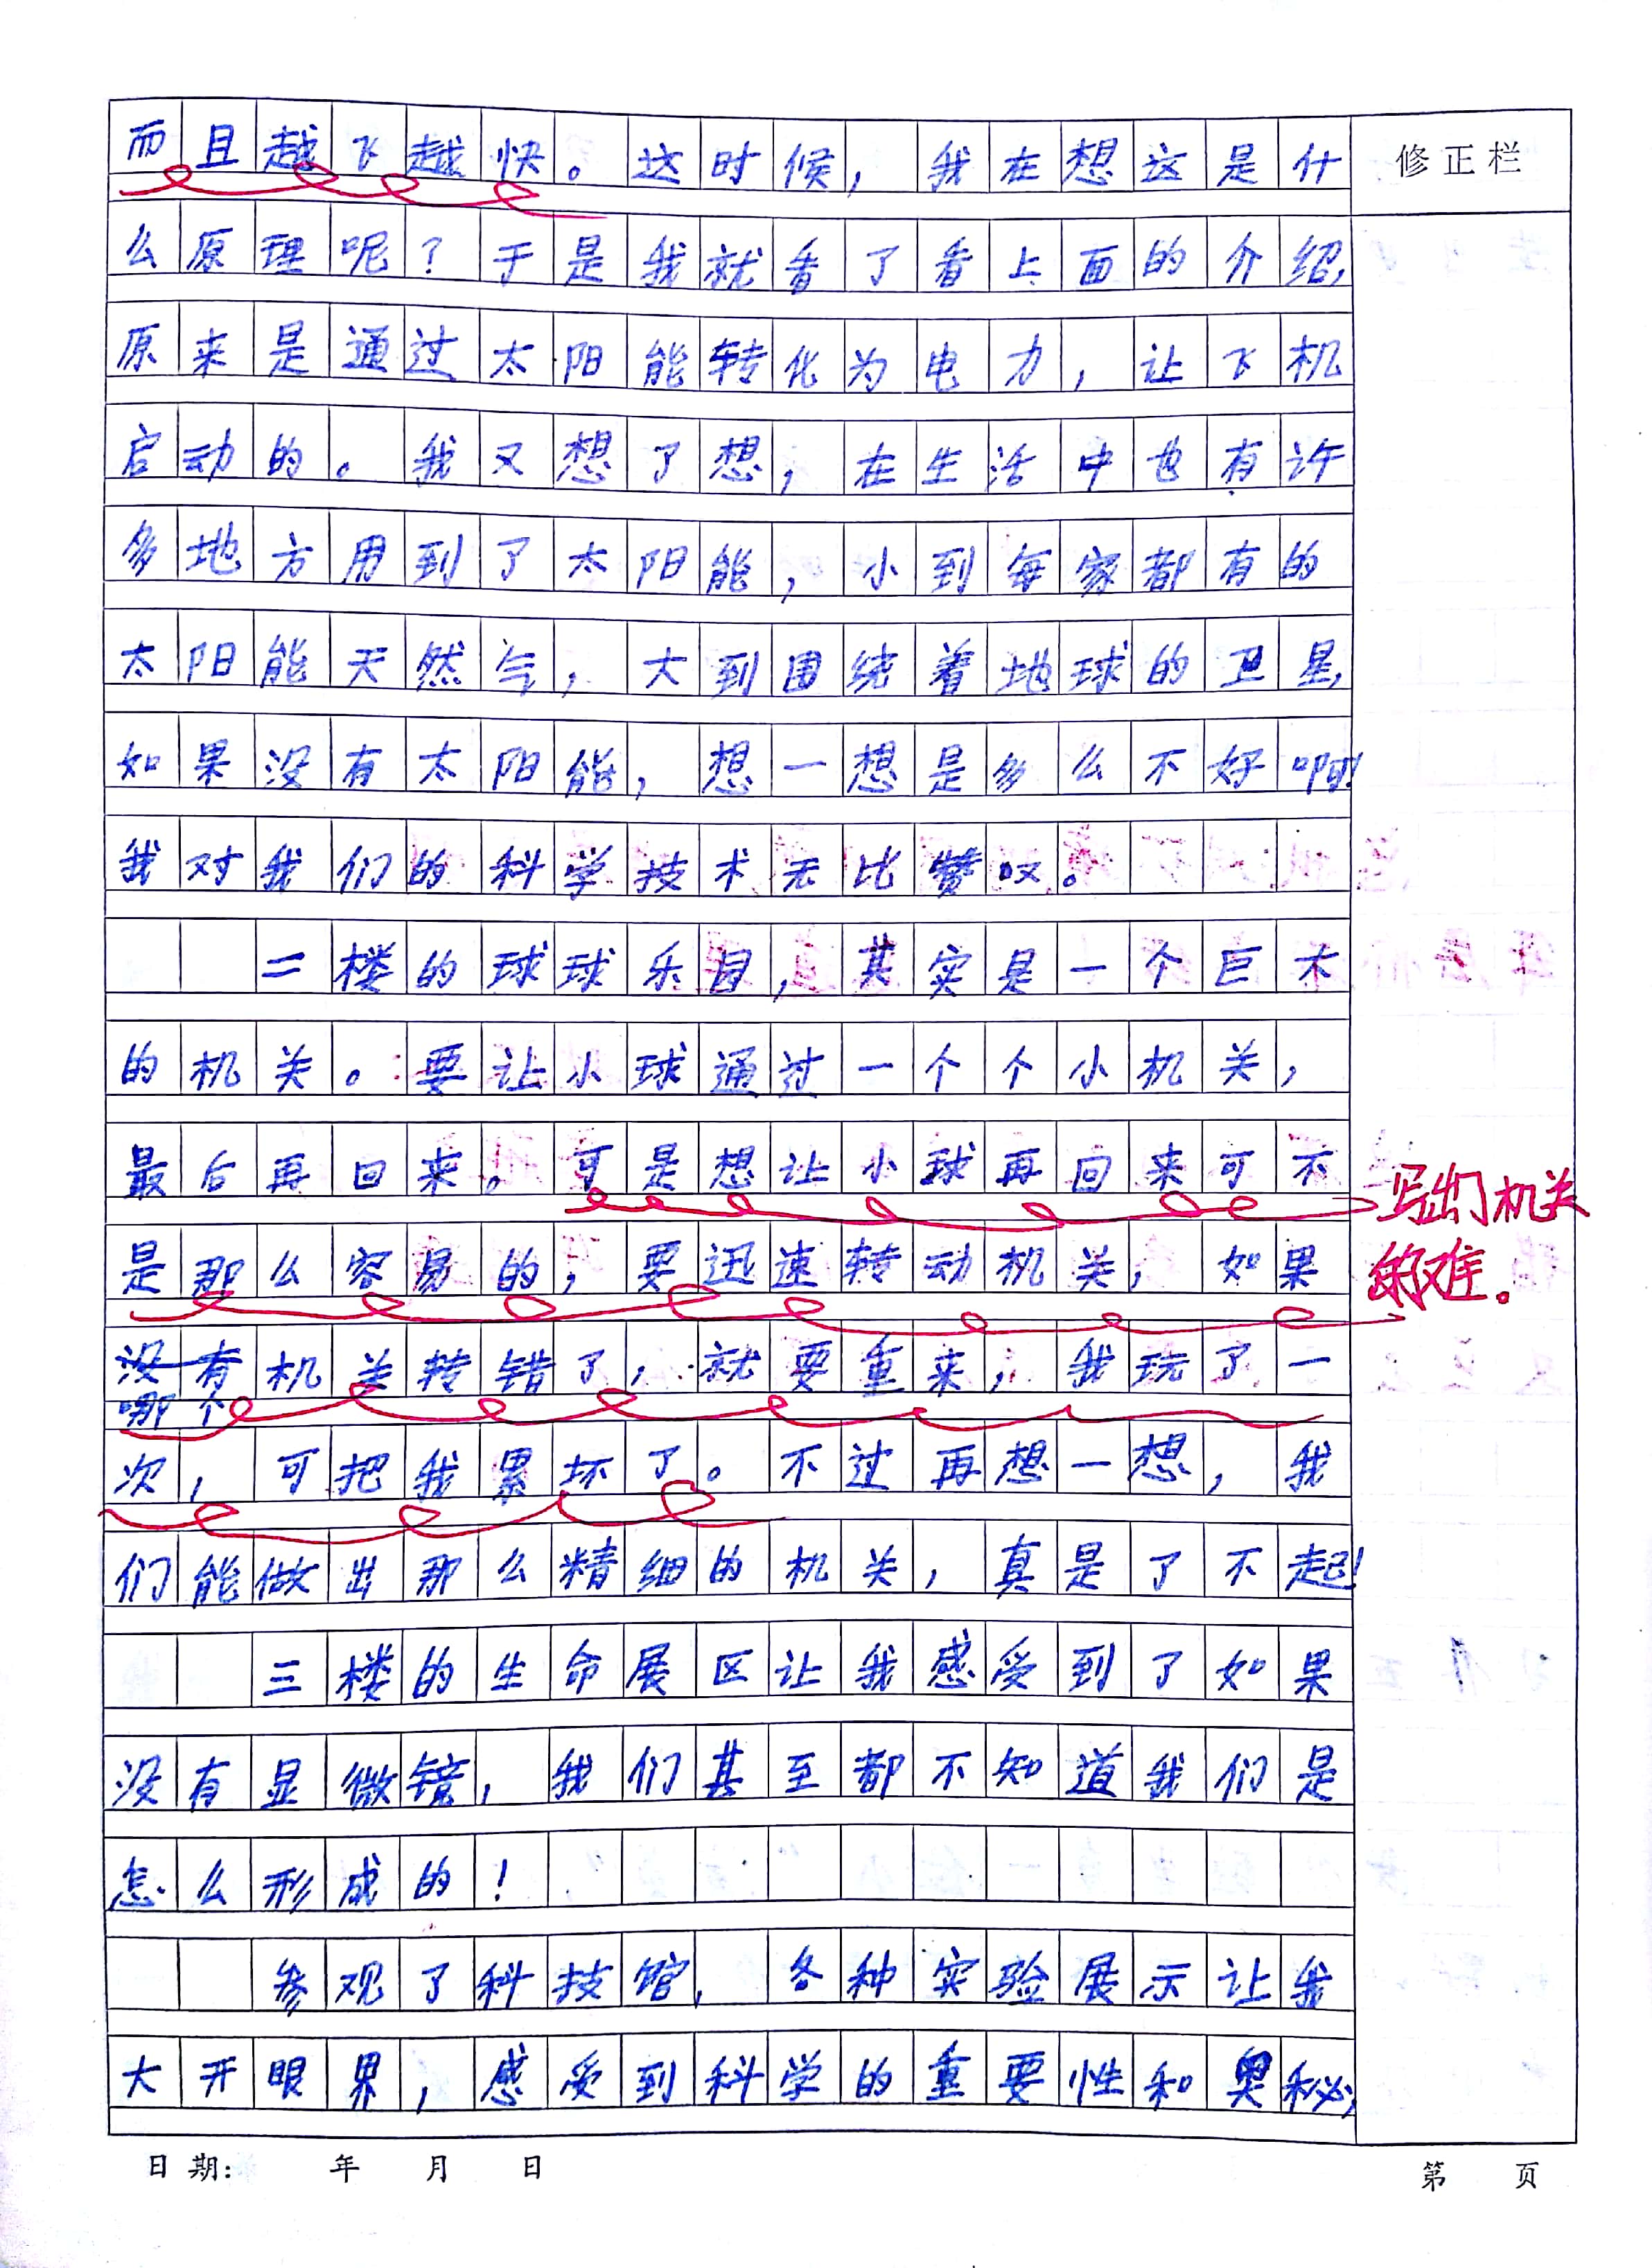 而且越飞越快。这时候，我在想这是什
修正栏
么原理呢？于是我就看了看上面的介绍，
原来是通过太阳能转化为电力，让飞机
启动的。我又想了想，在生活中也有许
多地方用到了太阳能，小到每家都有的
太阳能天然气，大到围绕着地球的卫星，
如果没有太阳能，想一想是多么不好啊！
我对我们的科学技术无比赞叹。
二楼的球球乐园，其实是一个巨木
的机关。要让小球通过一个个小机关，
最后再回来。可是想让小球再回来可不
写出机关
是那么容易的，要迅速转动机关，如果
的难。
没有机关转错了，就要重来，我玩了一
哪个
次，可把我累坏了。不过再想一想，我
们能做出那么精细的机关，真是了不起！
三楼的生命展区让我感受到了如果
没有显微镜，我们甚至都不知道我们是
怎么形成的！
参观了科技馆，各种实验展示让我
大开眼界，感受到科学的重要性和奥秘，
日期： 年 月 日
第 页